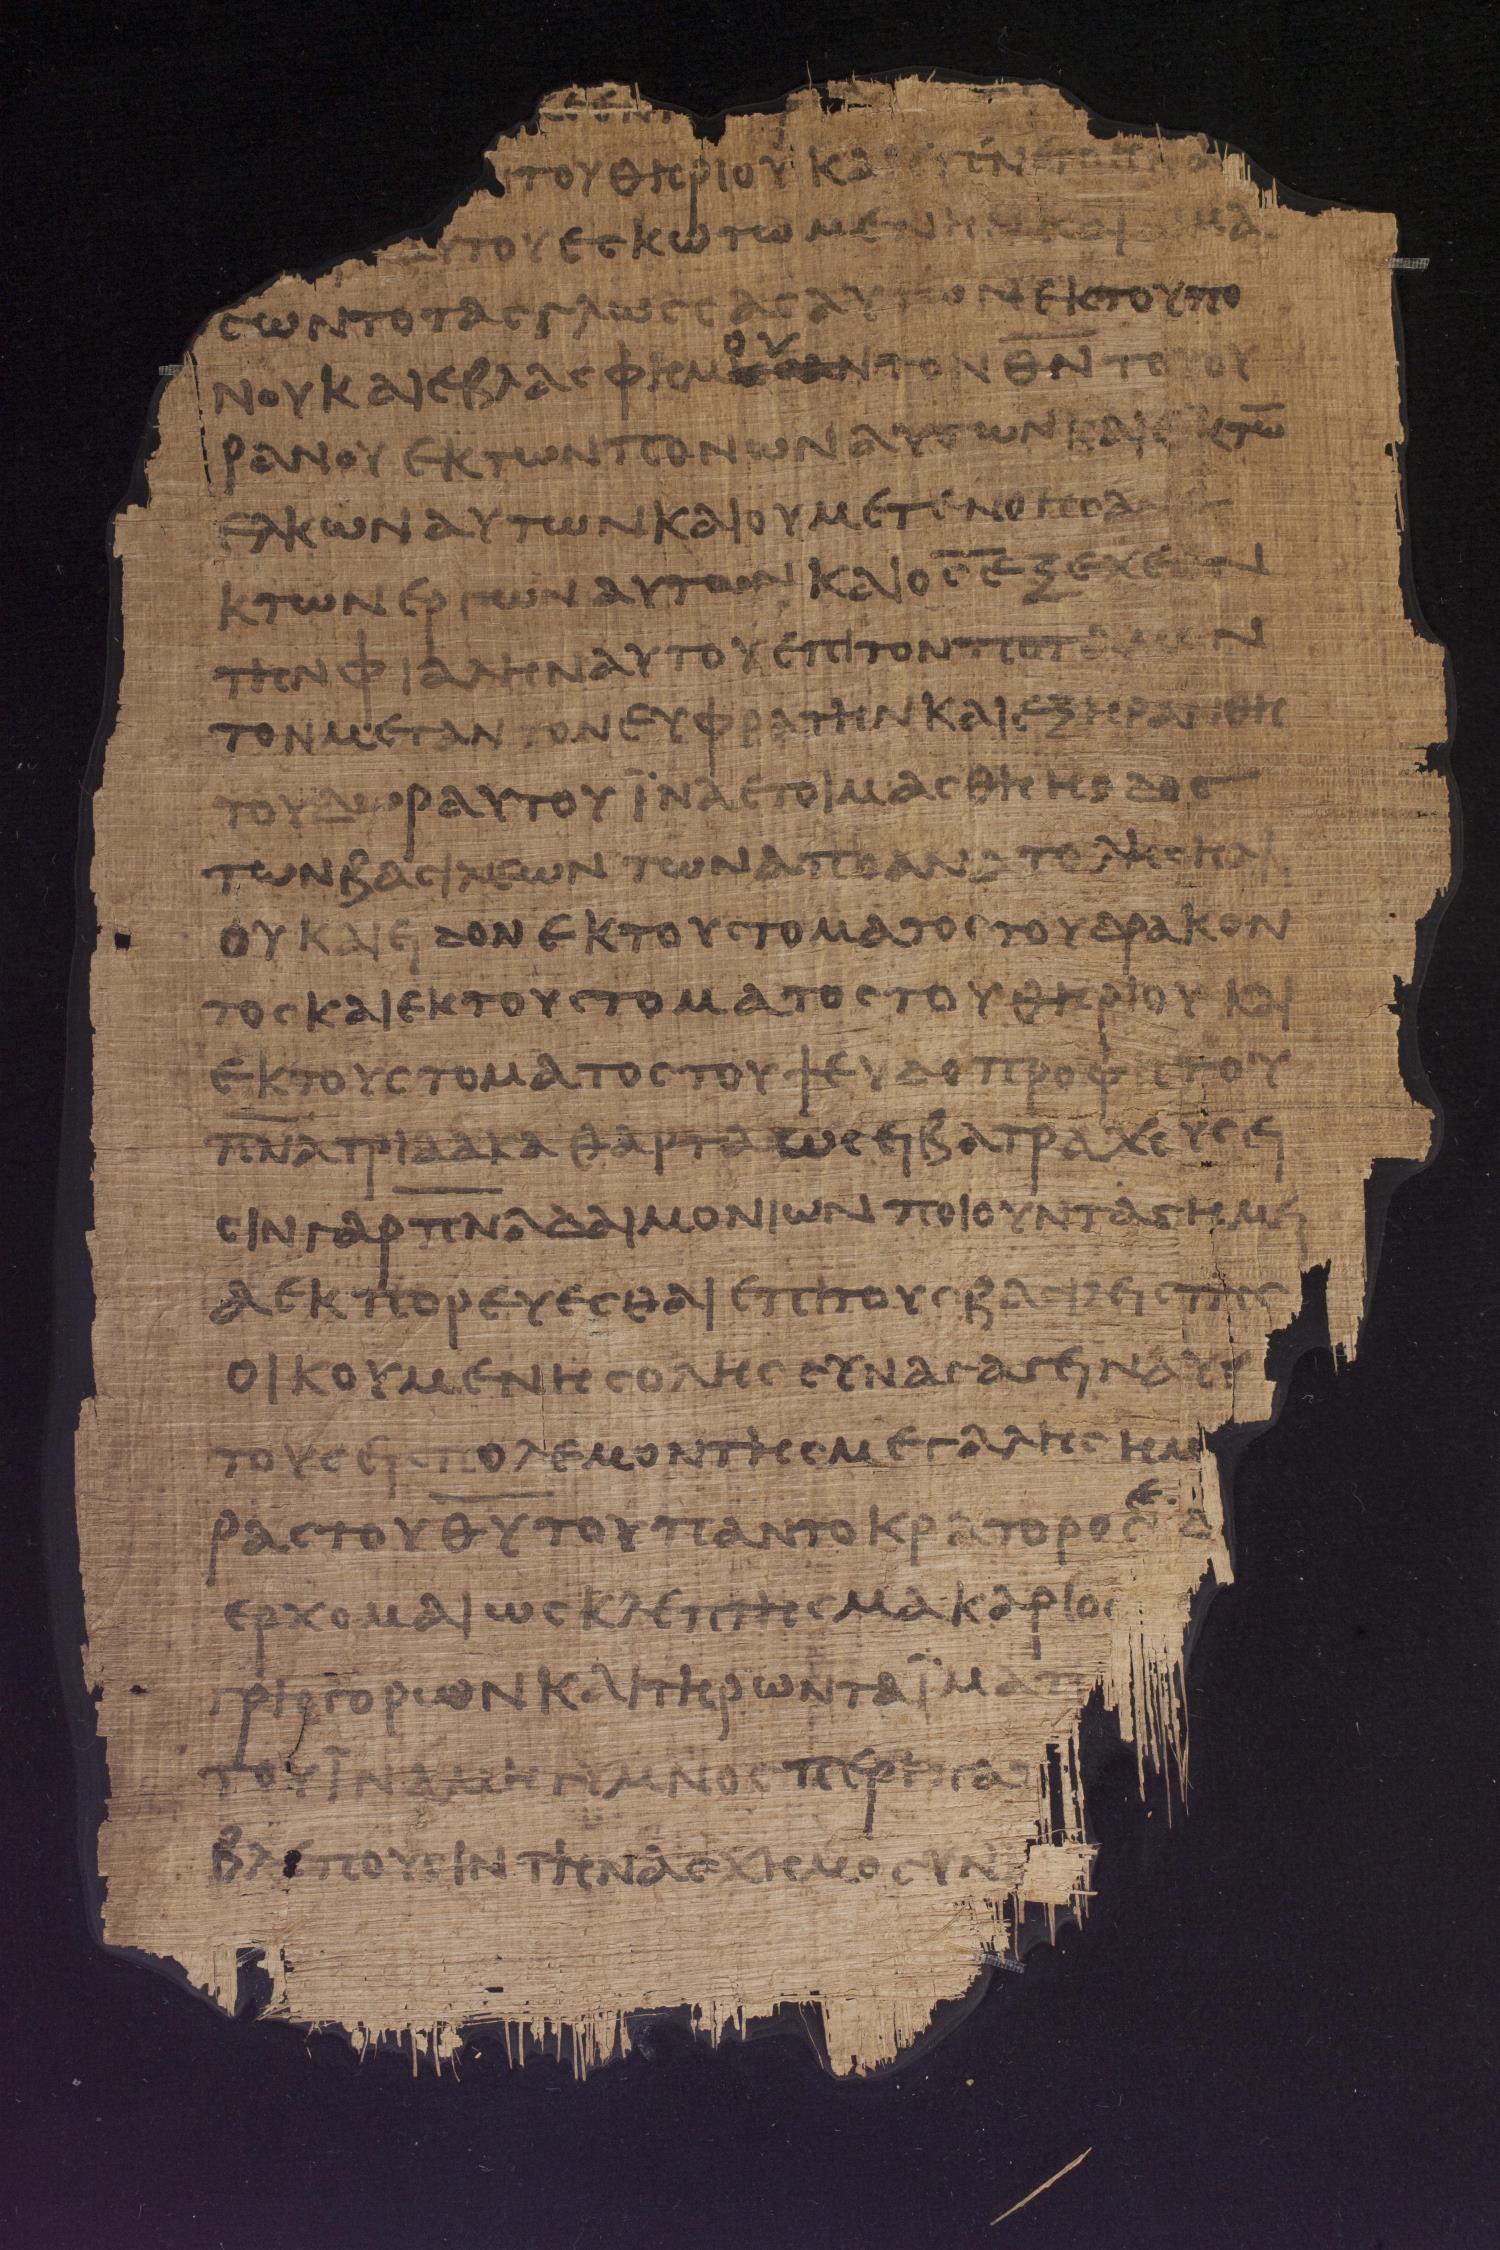 του θηριου και
αυτου εσκωτωμενη και
σωντο τας γλωσσας αυτων εκ του πο
νου και εβλασφημουν τον θ̅ν̅ του ου
ρανου εκ των πονων αυτων και εκ τω̅
ελκων αυτων και ου μετενοησαν ε
κ των εργων αυτων και ο ς̅ εξεχεεν
την φιαλην αυτου επι τον ποταμον
τον μεγαν τον ευφρατην και εξηρανθη
το υδωρ αυτου ϊνα ετοιμασθη η οδος
των βασιλεων των απο ανατολης ηλι
ου και ειδον εκ του στοματος του δρακον
τος και εκ του στοματος του θηριου και
εκ του στοματος του ψευδοπροφητου
π̅ν̅α̅ τρια ακαθαρτα ωσει βατραχους ει
σιν γαρ π̅ν̅α̅ δαιμονιων ποιουντα σημει
α εκπορευεσθαι επι τους βασιλεις της
οικουμενης ολης συναγαγειν αυ
τους εις πολεμον της μεγαλης ημε
ρας του θ̅υ̅ του παντοκρατορος
ερχομαι ως κλεπτης μακαριος
γρηγορων και τηρων τα ϊματι
του ϊνα μη γυμνος περιπα
βλεπουσιν την ασχημοσυν